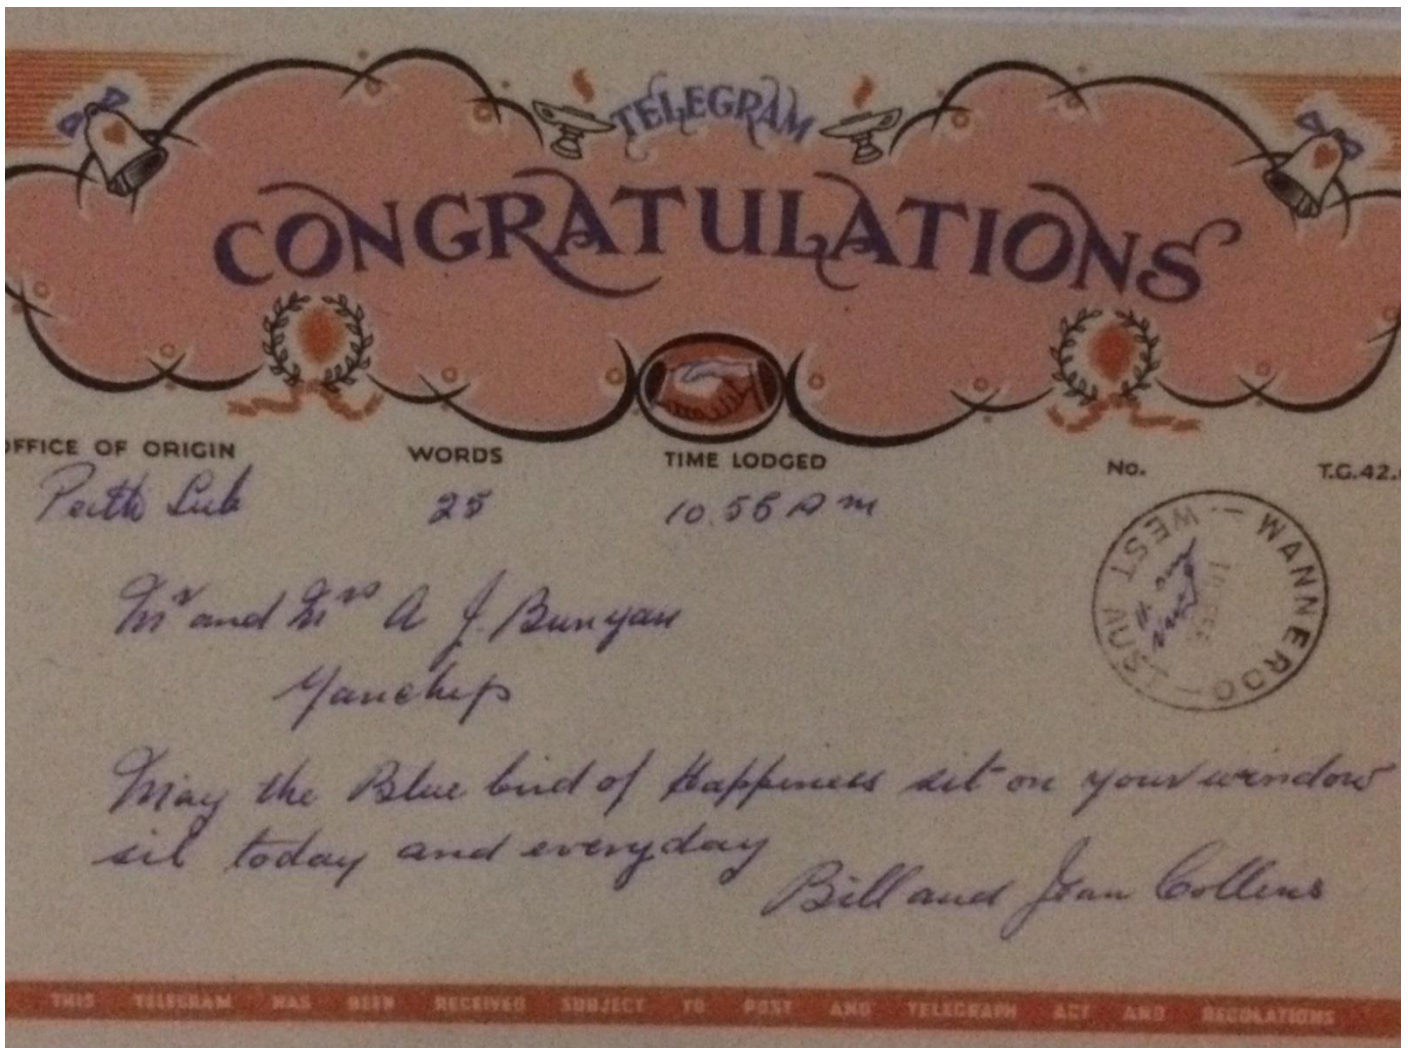 TELEGRAM
CONGRATULATIONS
OFFICE OF ORIGIN WORDS TIME LODGED No. T.G.42.
Perth Sub 25 10.56 A m
WANNEROO – WEST AUST –
Mr and Mrs A J. Bunyan
Yanchep
May the Blue bird of Happiness sit on your window
sil today and everyday
Bill and Jean Collins
THIS TELEGRAM HAS BEEN RECEIVED SUBJECT TO POST AND TELEGRAPH ACT AND REGULATIONS